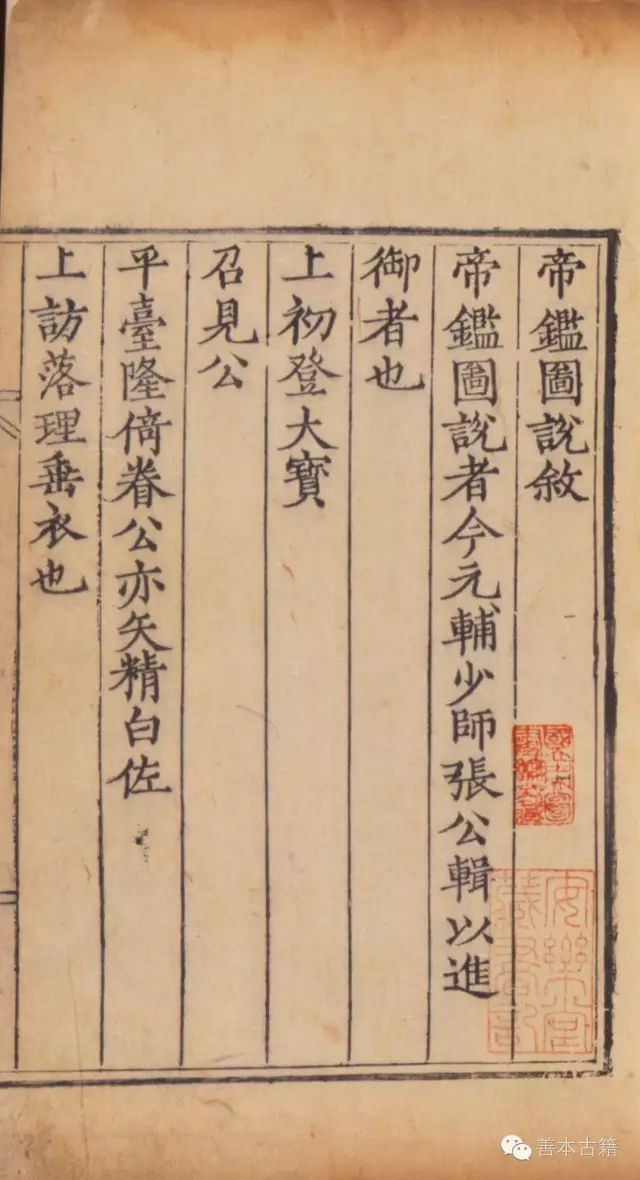 帝鑑圖說敘
帝鑑圖說者今元輔少師張公輯以進
御者也
上初登大寶
召見公
平臺隆倚眷公亦矢精白佐
上訪落理垂衣也
安樂堂
藏書記
善本古籍